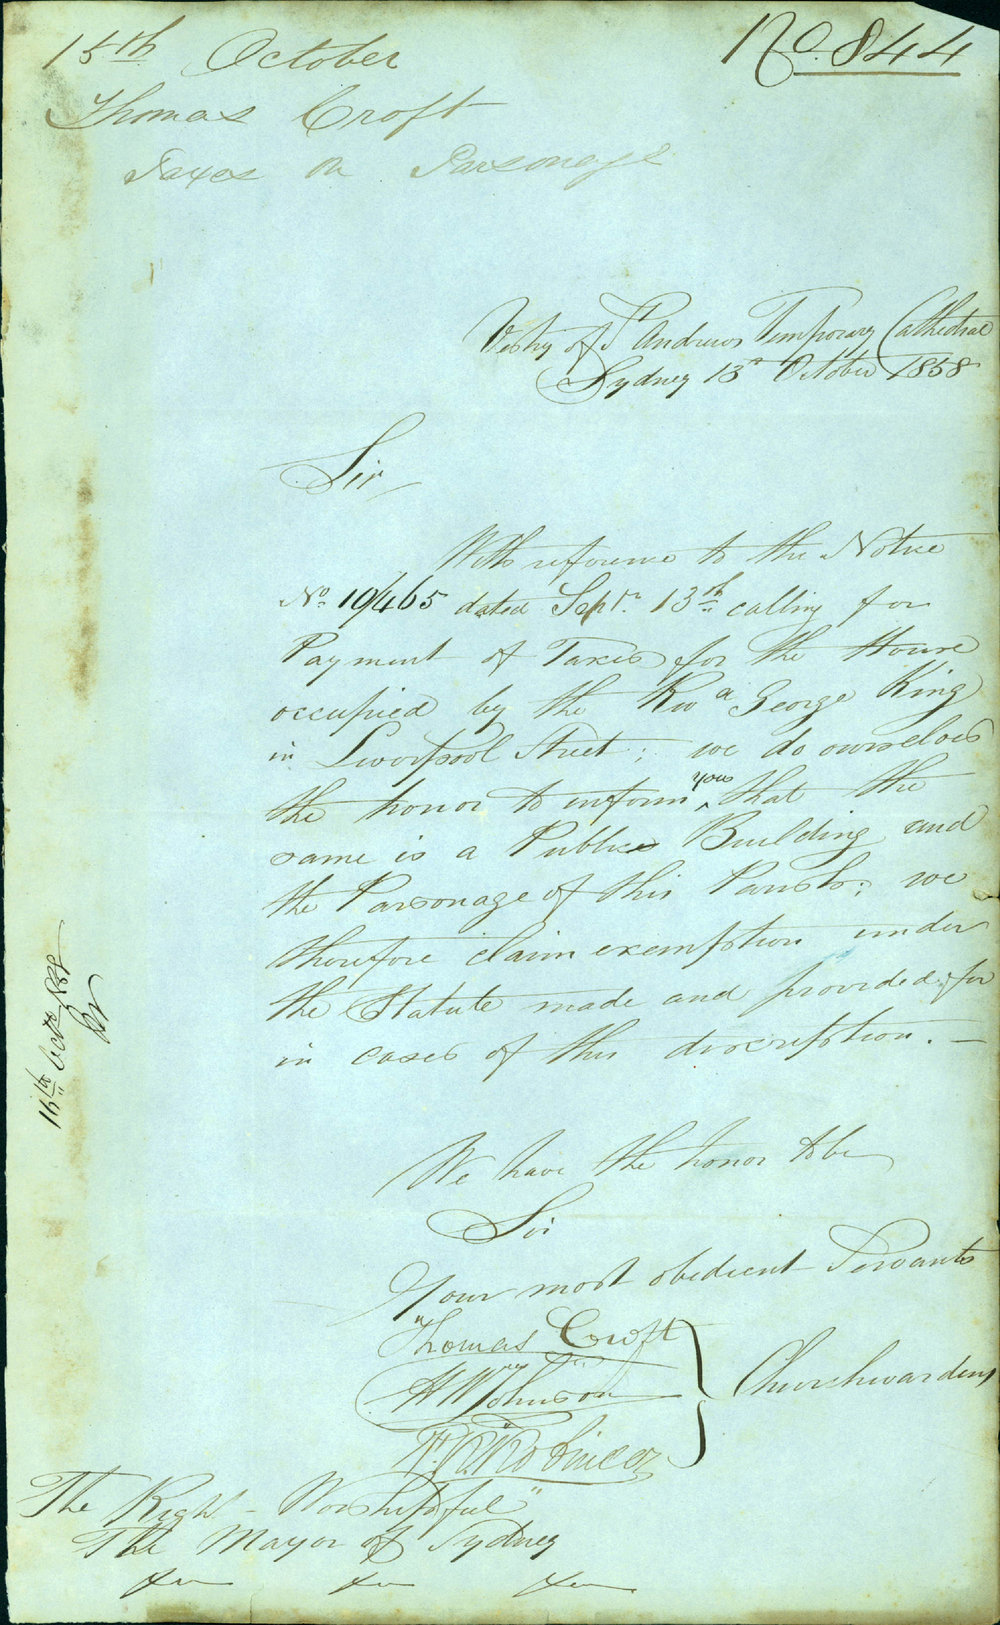 15th October
No. 844
Thomas Croft
Taxes on Parsonage
Vestry of St Andrews Temporary Cathedral
Sydney 13th October 1858
Sir
With reference to the Notice
No. 10/465 dated Septr. 13th calling for
Payment of Taxes for the House
occupied by the Revd George King
in Liverpool Street; we do ourselves
the honor to inform you that the
same is a Public Building and
the Parsonage of this Parish; we
therefore claim exemption under
the Statute made and provided for
in cases of this discription. —
We have the honor to be
Sir
Your most obedient Servants
Thomas Croft
Johnson
Churchwardens
The Right Worshipful
The Mayor of Sydney
16th Octr 1858